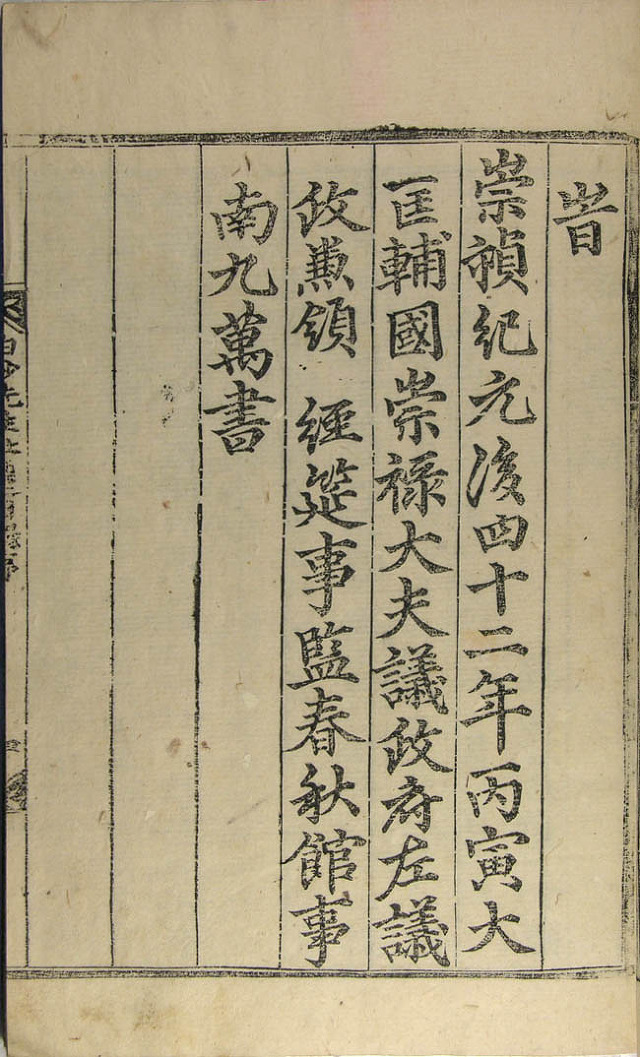 旹
崇禎紀元後四十二年丙寅大
匡輔國崇祿大夫議政府左議
政兼領 經筵事監春秋館事
南九萬書